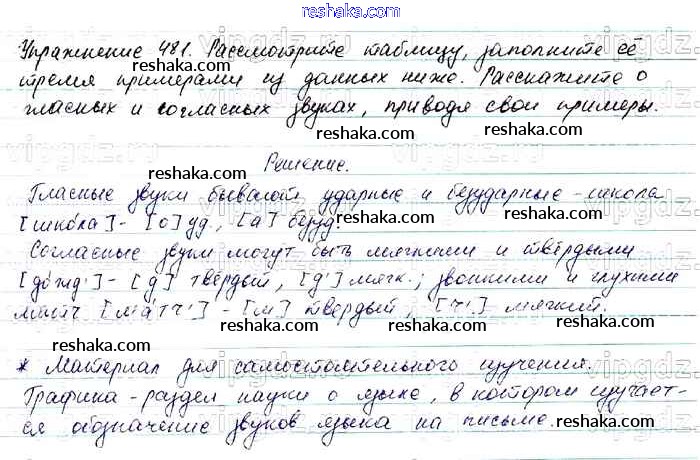 reshaka.com
Упражнение 481. Рассмотрите таблицу, заполните её
тремя примерами из данных ниже. Расскажите о
reshaka.com
гласных и согласных звуках, приводя свои примеры.
reshaka.com
reshaka.com
Решение.
reshaka.com
Гласные звуки бывают ударные и безударные - школа
[шко́ла] - [о] уд., [а] безуд.
reshaka.com
Согласные звуки могут быть мягкими и твёрдыми
reshaka.com
[до́жд'] - [д] твёрдый, [д'] мягк.; звонкими и глухими
матч [ма́тч'] - [м] твердый, [ч'] мягкий.
reshaka.com reshaka.com
* Материал для самостоятельного изучения.
reshaka.com
Графика - раздел науки о языке, в котором изучает-
ся обозначение звуков языка на письме.
reshaka.com
reshaka.com